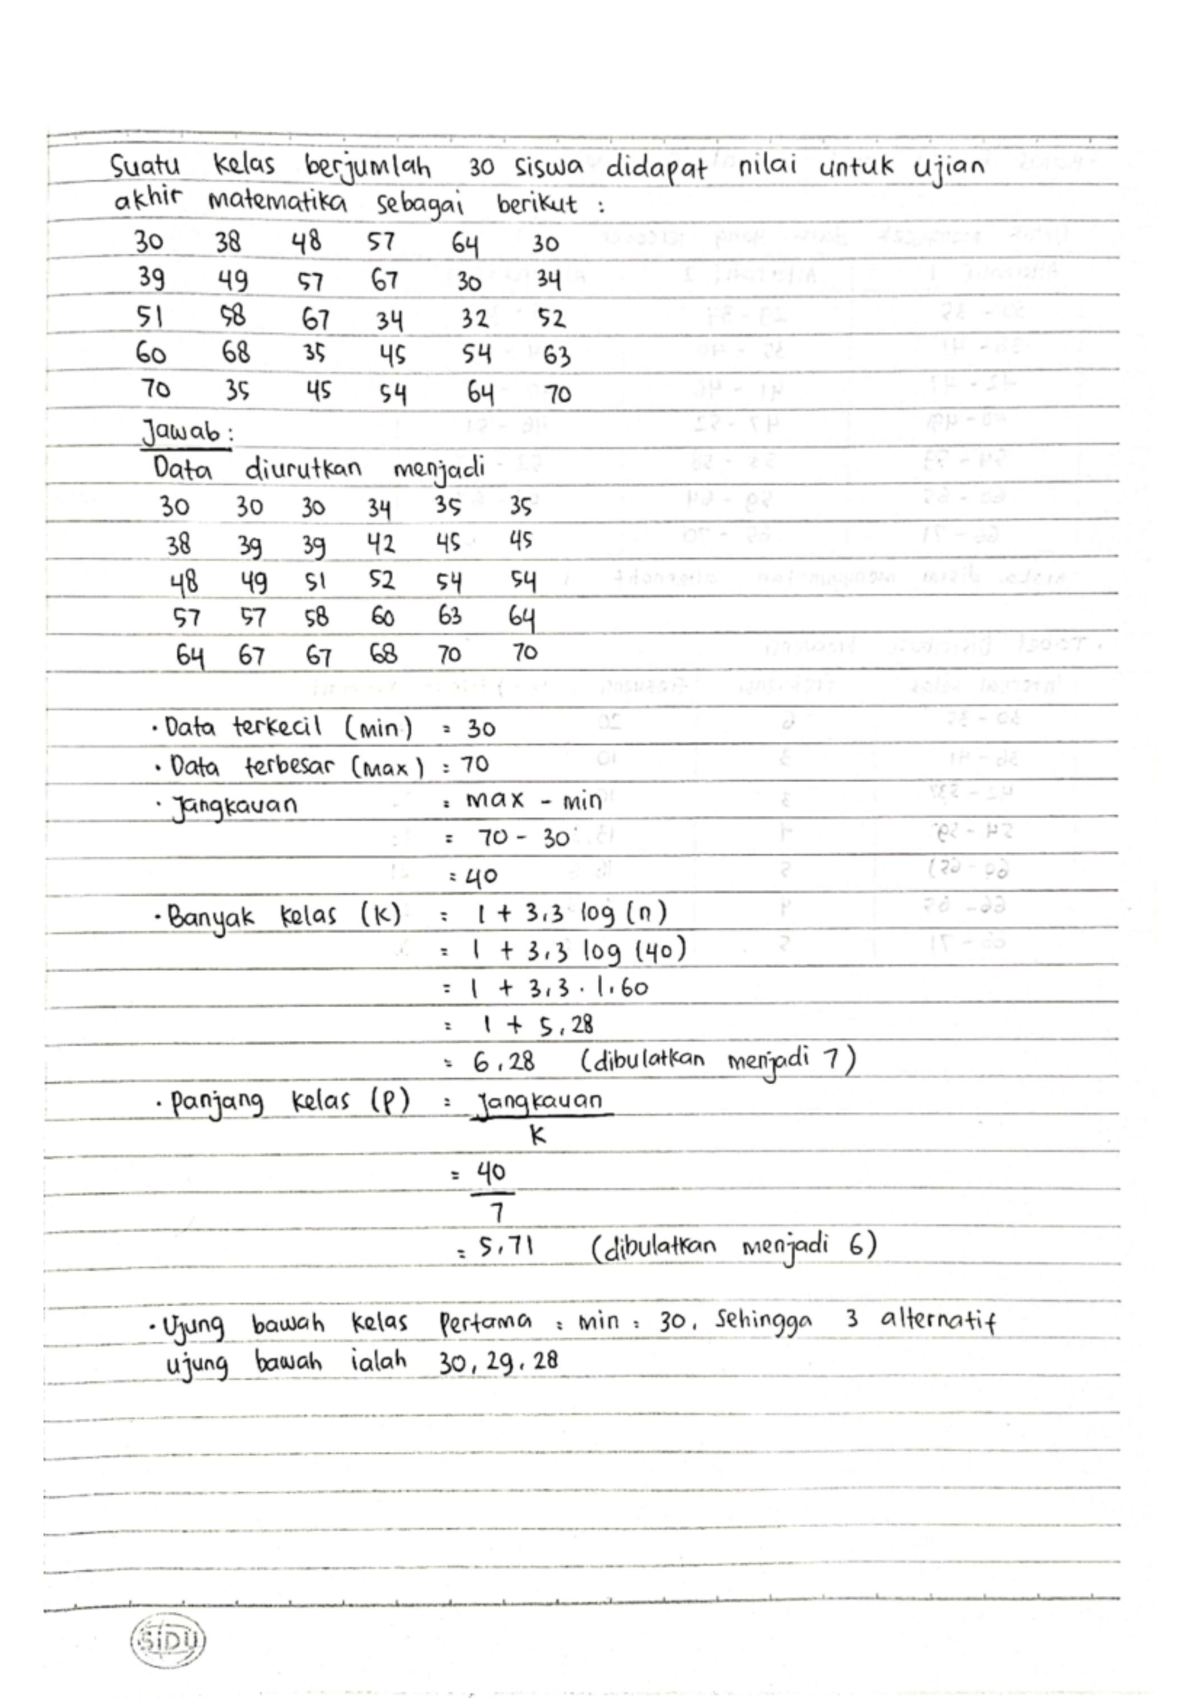 Suatu kelas berjumlah 30 siswa didapat nilai untuk ujian
akhir matematika sebagai berikut :
30 38 48 57 64 30
39 49 57 67 30 34
51 58 67 34 32 52
60 68 35 45 54 63
70 35 45 54 64 70
Jawab :
Data diurutkan menjadi
30 30 30 34 35 35
38 39 39 42 45 45
48 49 51 52 54 54
57 57 58 60 63 64
64 67 67 68 70 70
· Data terkecil (min) = 30
· Data terbesar (max) = 70
· Jangkauan = max - min
= 70 - 30
= 40
· Banyak kelas (k) = 1 + 3,3 log (n)
= 1 + 3,3 log (40)
= 1 + 3,3 . 1,60
= 1 + 5,28
= 6,28 (dibulatkan menjadi 7)
· Panjang kelas (P) = Jangkauan
K
= 40
7
= 5,71 (dibulatkan menjadi 6)
· Ujung bawah kelas pertama = min = 30, sehingga 3 alternatif
ujung bawah ialah 30, 29, 28
SiDU